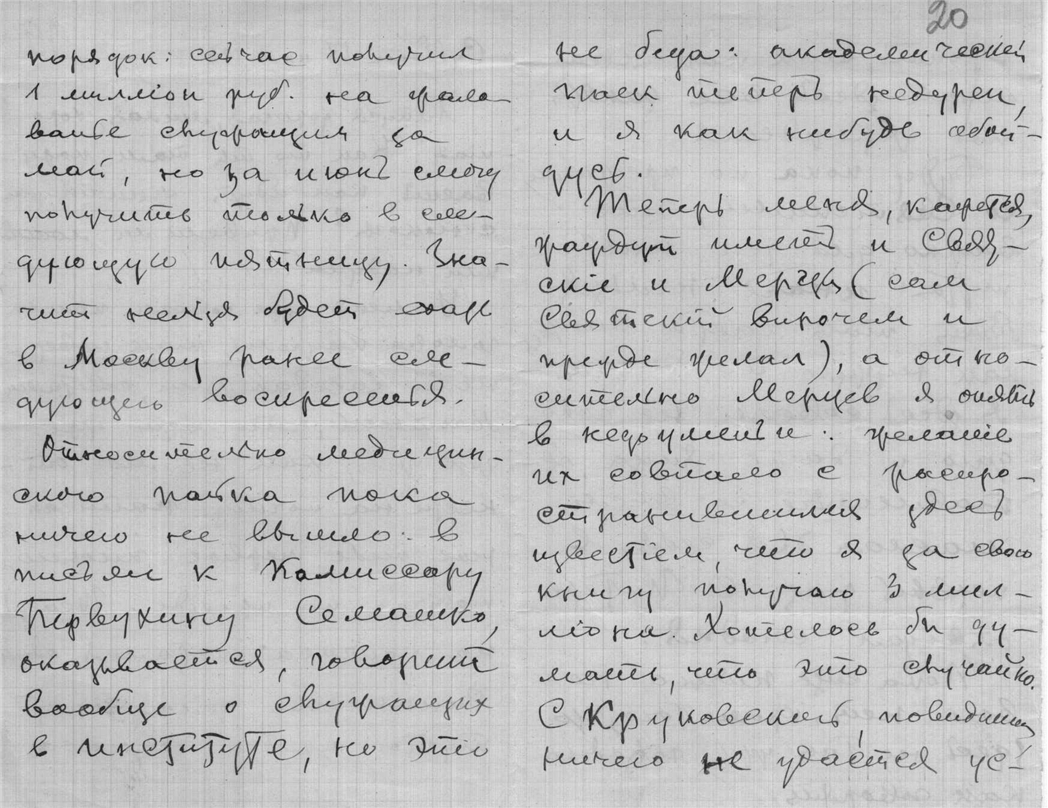 порядок: сейчас получил
1 милліон руб. на жало-
ванье служащим за
май, но за июнь смогу
получить только в сле-
дующую пятницу. Зна-
чит нельзя будет
в Москву ранее сле-
дующего воскресенья.
Относительно медицин-
ского пайка пока
ничего не вышло: в
письме к Комиссару
Первухину Семашко,
оказывается, говорит
вообще о служащих
в институте, но это
20
не беда: академический
паек теперь недурен,
и я как нибудь обой-
дусь.
Теперь меня, кажется,
жаждут иметь и Свят-
скіе и Мерцы (сам
Святскій впрочем и
прежде желал), а отно-
сительно Мерцев я опять
в недоуменьи: желаніе
их совпало с распро-
странившимся здесь
известіем, что я за свою
книгу получаю 3 мил-
ліона. Хотелось бы ду-
мать, что это случайно.
С Круковской, повидимому,
ничего не удается ус-